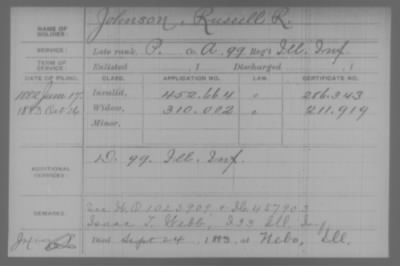 NAME OF SOLDIER: Johnson, Russell R.
SERVICE: Late rank, P. Co. A, 99 Reg't Ill. Inf.
TERM OF SERVICE: Enlisted , 1 Discharged , 1
DATE OF FILING. CLASS. APPLICATION NO. LAW. CERTIFICATE NO.
1882 June 17. Invalid, 452.664 " 286.343
1883 Oct 26 Widow, 310.002 " 211.919
Minor,
ADDITIONAL SERVICES: D. 99. Ill. Inf.
REMARKS: See W.O. 1023909 + Ib 457903
Isaac T. Webb, I 33 Ill. Inf
Died Sept 24, 1883, at Nebo, Ill.